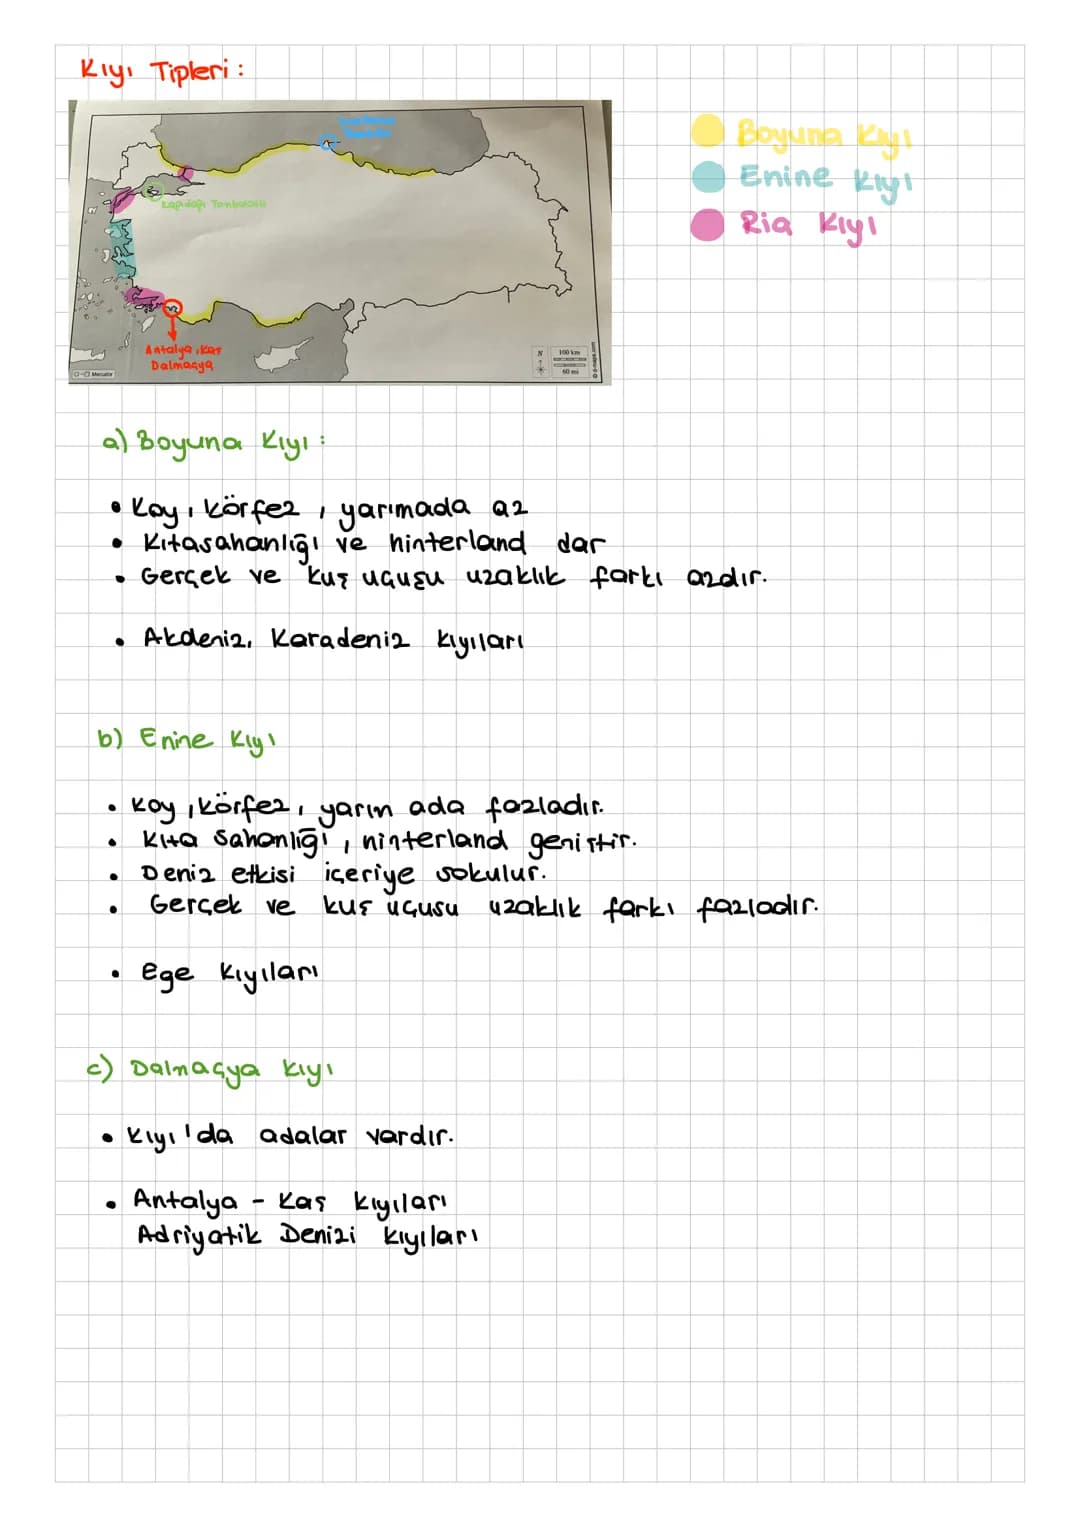 Kıyı Tipleri :
Boyuna Kıyı
Enine Kıyı
Ria Kıyı
Kapıdağı Tombolosu
Antalya, Kaş
Dalmaçya
N
100 km
60 mi
Mercator
© d-maps.com
a) Boyuna Kıyı :
• Koy, körfez, yarımada az
• Kıtasahanlığı ve hinterland dar
• Gerçek ve kuş uçuşu uzaklık farkı azdır.
• Akdeniz, Karadeniz kıyıları
b) Enine Kıyı
• Koy, körfez, yarım ada fazladır.
• Kıta sahanlığı, hinterland geniştir.
• Deniz etkisi içeriye sokulur.
• Gerçek ve kuş uçusu uzaklık farkı fazladır.
• Ege kıyıları
c) Dalmaçya kıyı
• Kıyı'da adalar vardır.
• Antalya - Kaş kıyıları
Adriyatik Denizi kıyıları